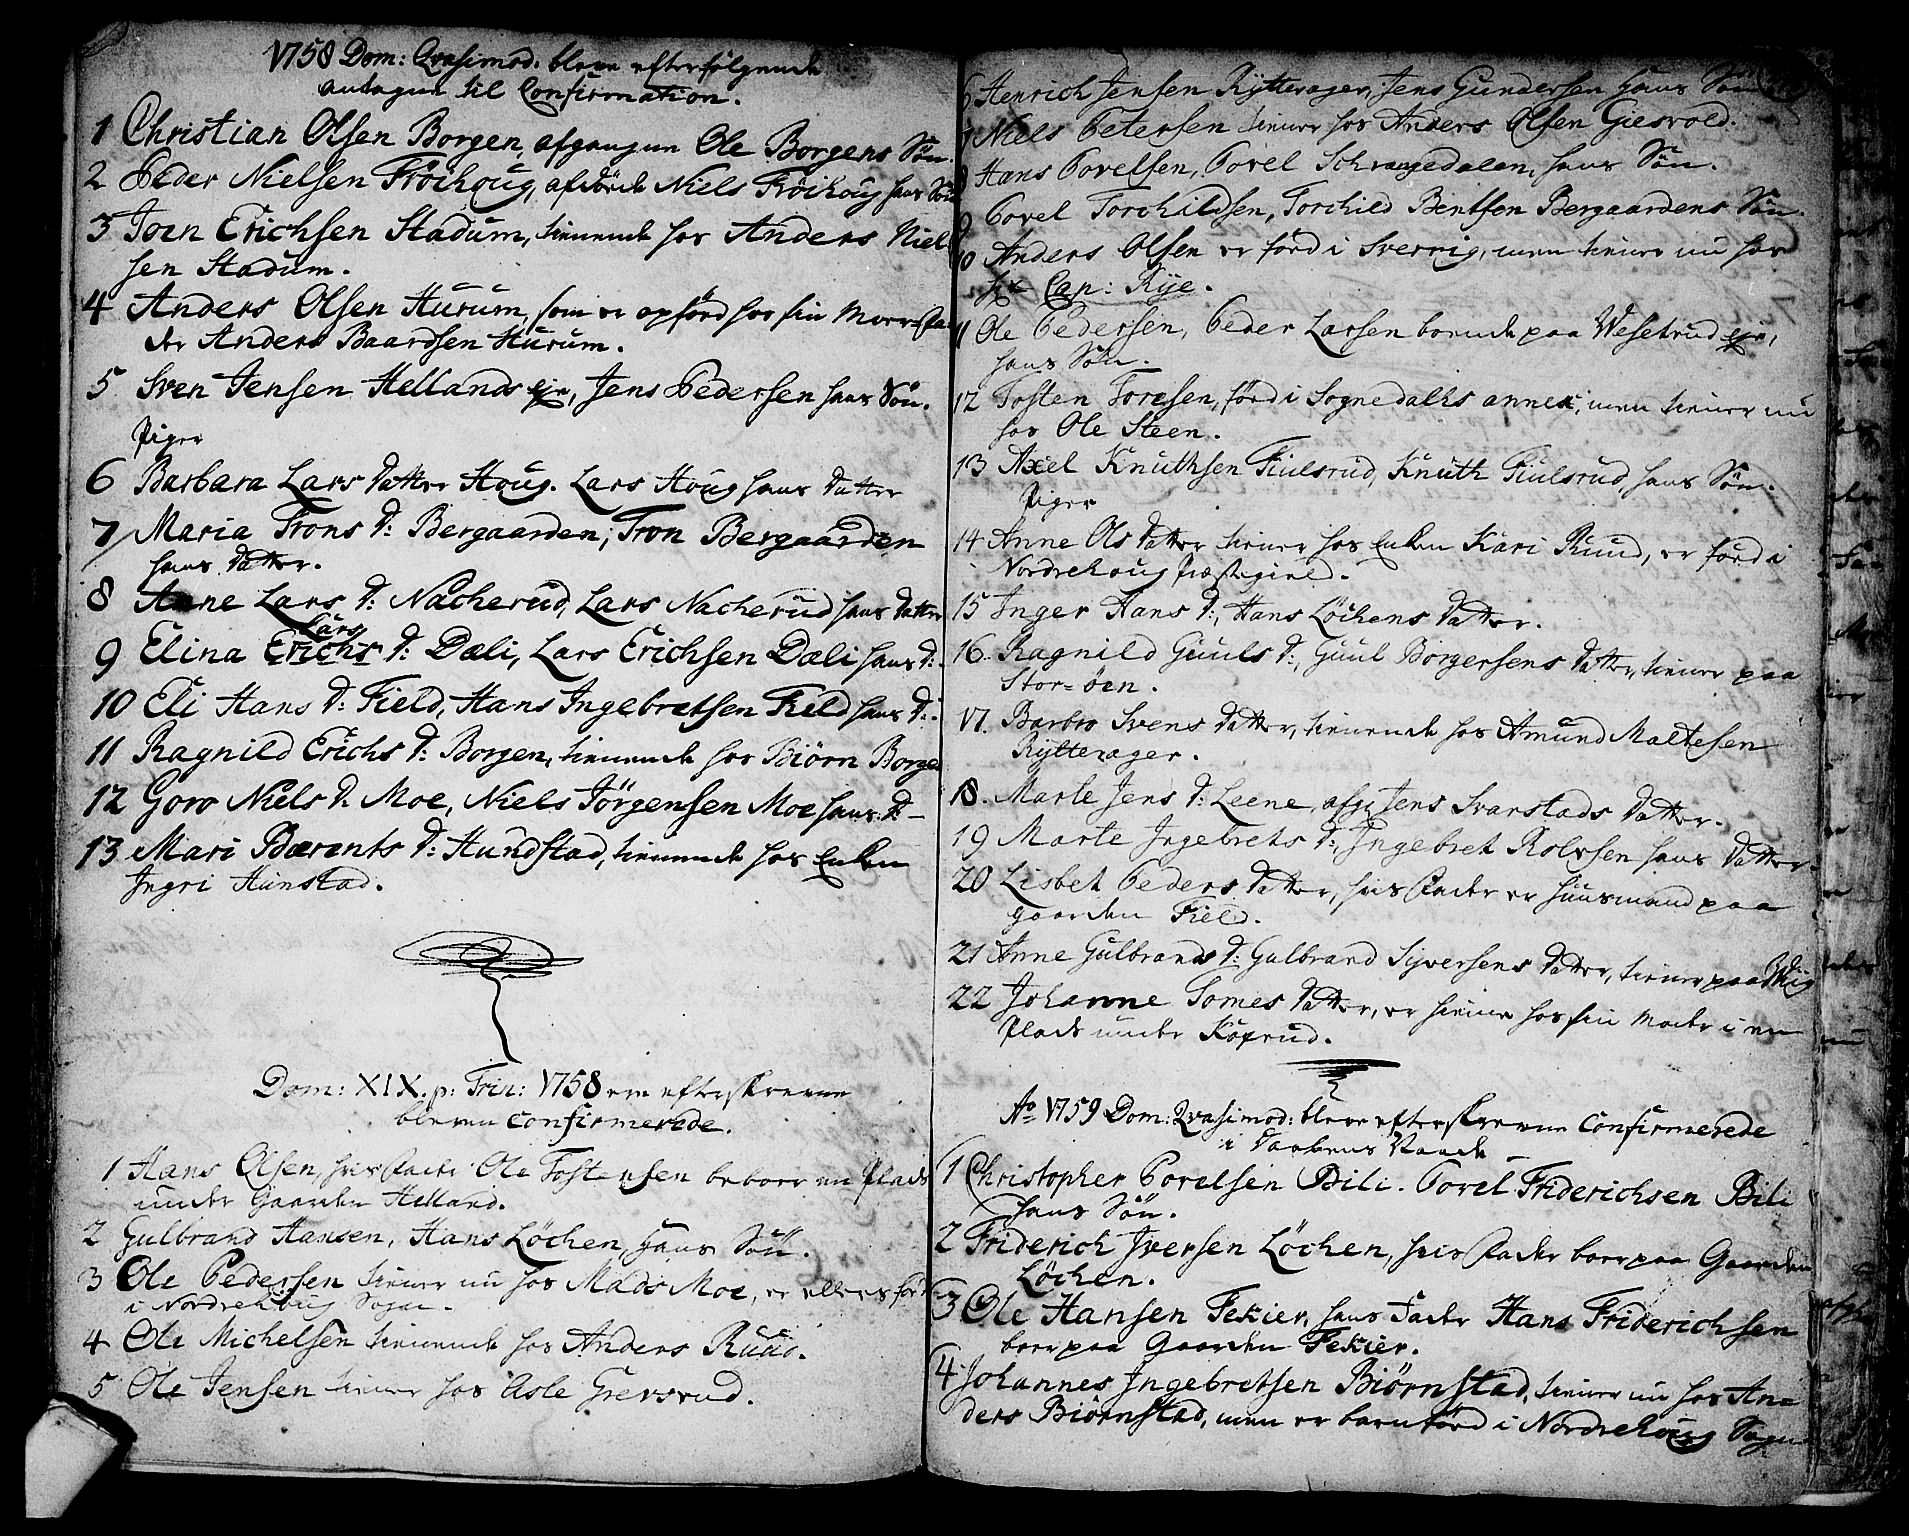 1758 Dom: Qvasimod. bleve efterfølgende
antagne til Confirmation.
1 Christian Olsen Borgen, afgangne Ole Borgens Sön.
2 Peder Nielsen Fröihoug, afdöde Niels Fröihoug hans Sön
3 Joen Erichsen Stadum, tienende hos Anders Niel-
sen Stadum.
4 Anders Olsen Hurum, som er opfød hos sin
der Anders Baardsen Hurum.
5 Sven Jensen Hellands eje, Jens Pedersen hans Sön.
Piger
6 Barbara Lars Datter Houg. Lars Houg hans Datter
7 Maria Trons D: Bergaarden, Tron Bergaarden
hans Datter.
8 Anne Lars D: Nacherud, Lars Nacherud hans Datter
Lars
9 Elina Erichs D: Dæli, Lars Erichsen Dæli hans D:
10 Eli Hans D: Field, Hans Ingebretsen Field hans D:
11 Ragnild Erichs D: Borgen, tienende hos Biörn Borge
12 Goro Niels D. Moe, Niels Jörgensen Moe hans D-
13 Mari Bærents D: Hundstad, tienende hos Enken
Ingri Hunstad.
Dom: XIX. p: Trin: 1758 ere efterskrevne
bleven confirmerede.
1 Hans Olsen, his Fader Ole Tostensen beboer en Plads
under Gaarden Helland.
2 Gulbrand Hansen, Hans Löchen Hans Sön.
3 Ole Pedersen tiener nu hos Mads Moe, er ellers föd
i Nordrehoug Sogn.
4 Ole Michelsen tienende hos Anders Ruud.
5 Ole Jensen tiener hos Asle Grevsrud.
6 Henrich Jensen Rytterager, Jens Gundersen Hans Sön
7 Niels Petersen tiener hos Anders Olsen Giesvold.
8 Hans Povelsen, Povel Schragedalen, hans Sön.
9 Povel Torchildsen, Torchild Bentsen Bergaardens Sön.
10 Anders Olsen er förd i Sverrig, men tiener nu hos
Hr Cap: Rye.
11 Ole Pedersen, Peder Larsen boende paa Wesetrud eje,
hans Sön.
12 Tosten Toresen, förd i Sognedalks annex, men tiener nu
hos Ole Steen.
13 Axel Knuthsen Fiulsrud, Knuth Fiulsrud, hans Sön.
Piger
14 Anne Ols Datter tiener hos Enken Kari Ruud, er förd i
Nordrehoug Præstegield.
15 Inger Hans D:, Hans Löchens Datter.
16. Ragnild Guuls D:, Guul Borgersens Datter, tiener paa
Stor=öen.
17. Barbro Svens Datter, tienende hos Amund Maltesen
Rytterager.
18. Marte Jens D: Leene, afg: Jens Svarstads Datter.
19 Marte Ingebrets D: Ingebret Rolvsen hans Datter.
20 Lisbet Peders Datter, his Fader er Huusmand paa
gaarden Field.
21 Anne Gulbrands D: Gulbrand Syversens Datter, tiener paa
22 Johanne Tomes Datter, er hieme hos sin Moder i en
Plads under Kogrud.
Ao 1759 Dom: Qvasimod: bleve efterskrevne Confirmerede
i Daabens Naade
1 Christopher Povelsen Bili. Povel Friderichsen Bili
hans Sön.
2 Friderich Iversen Löchen, his Fader boer paa Gaarden
Löchen.
3 Ole Hansen Fekier, hans Fader Hans Friderichsen
boer paa Gaarden Fekier.
4 Johannes Ingebretsen Biörnstad, tiener nu hos An-
ders Biörnstad, men er barnförd i Nordrehoug Sogn